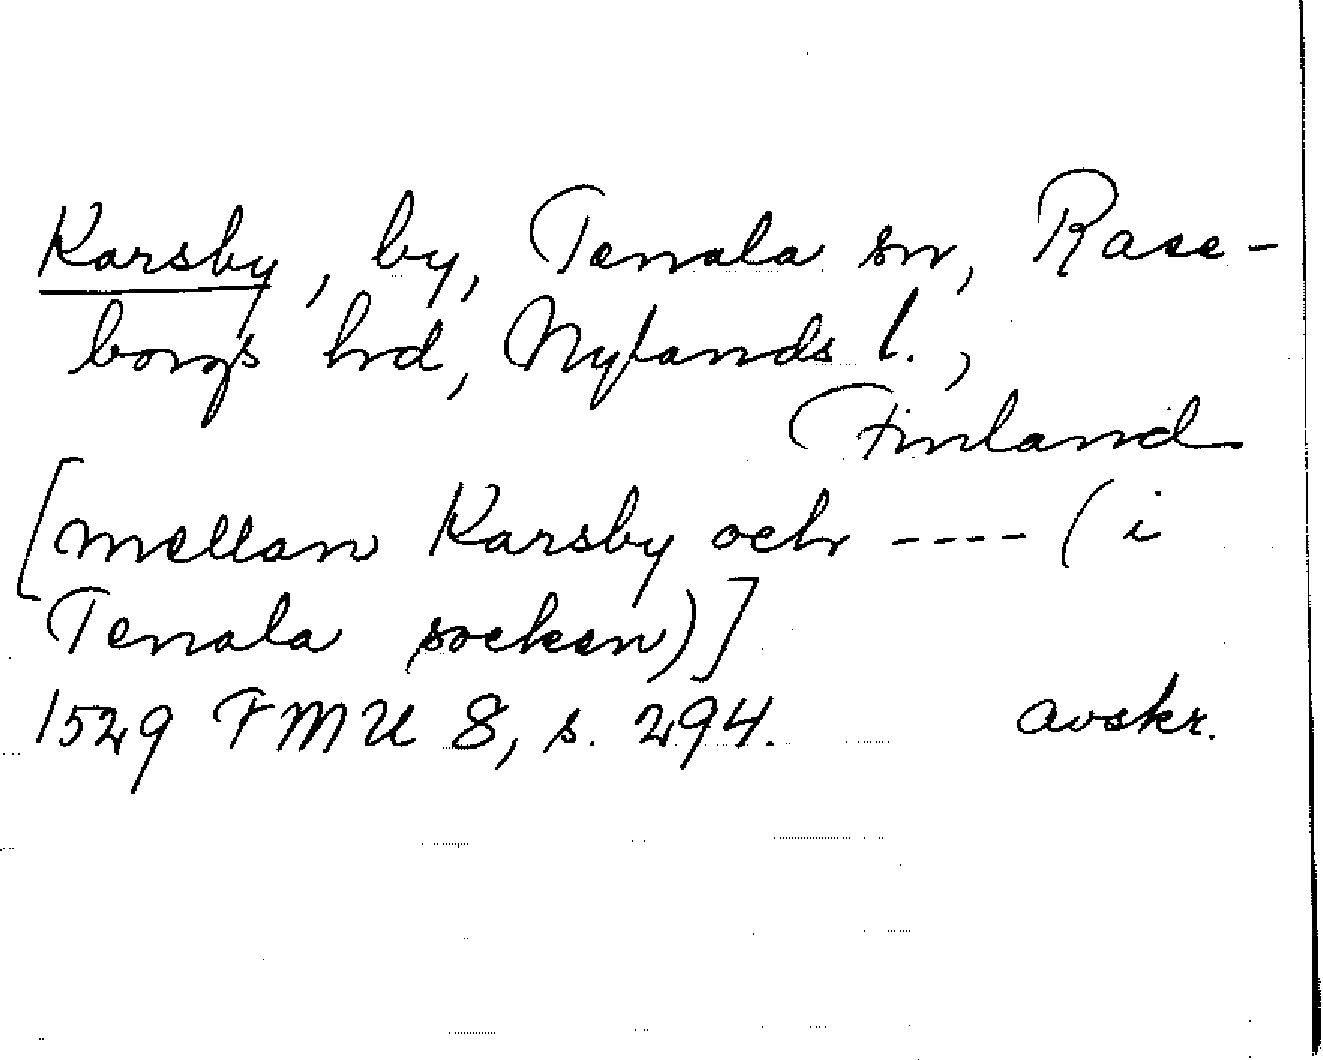 Karsby, by, Tenala sn, Rase-
borgs hrd, Nylands l.,
Finland
[mellan Karsby och ---- (i
Tenala socken)]
1529 FMU 8, s. 294. avskr.